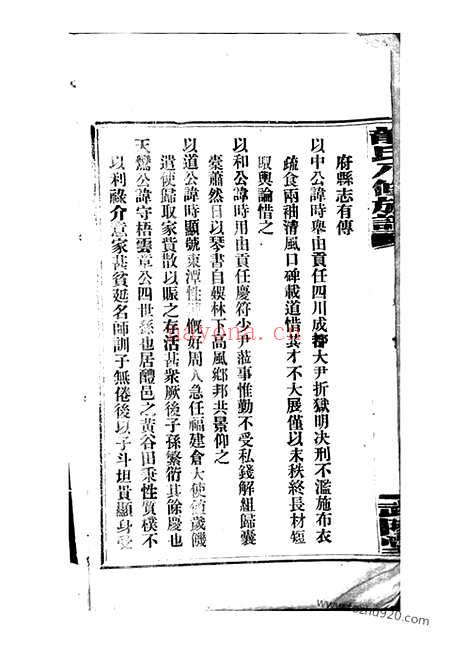 龍氏八修族譜
府縣志有傳
以中公諱時輿由貢任四川成都大尹折獄明決刑不濫施布衣
疏食兩袖清風口碑載道惜其才不大展僅以末秩終長材短
馭輿論惜之
以和公諱時用由貢任慶符少尹蒞事惟勤不受私錢解組歸囊
橐蕭然日以琴書自娛林下高風鄉邦共景仰之
以道公諱時顯號東潭性慷慨好周人急任福建倉大使值歲饑
遣使歸取家貲散以賑之存活甚衆厥後子孫繁衍其餘慶也
天鸞公諱守梧雲章公四世孫也居醴邑之黃谷田秉性質樸不
以利祿介意家甚貧延名師訓子無倦後以子斗垣貴顯身受
kanzt.cn
www.fozhu920.com